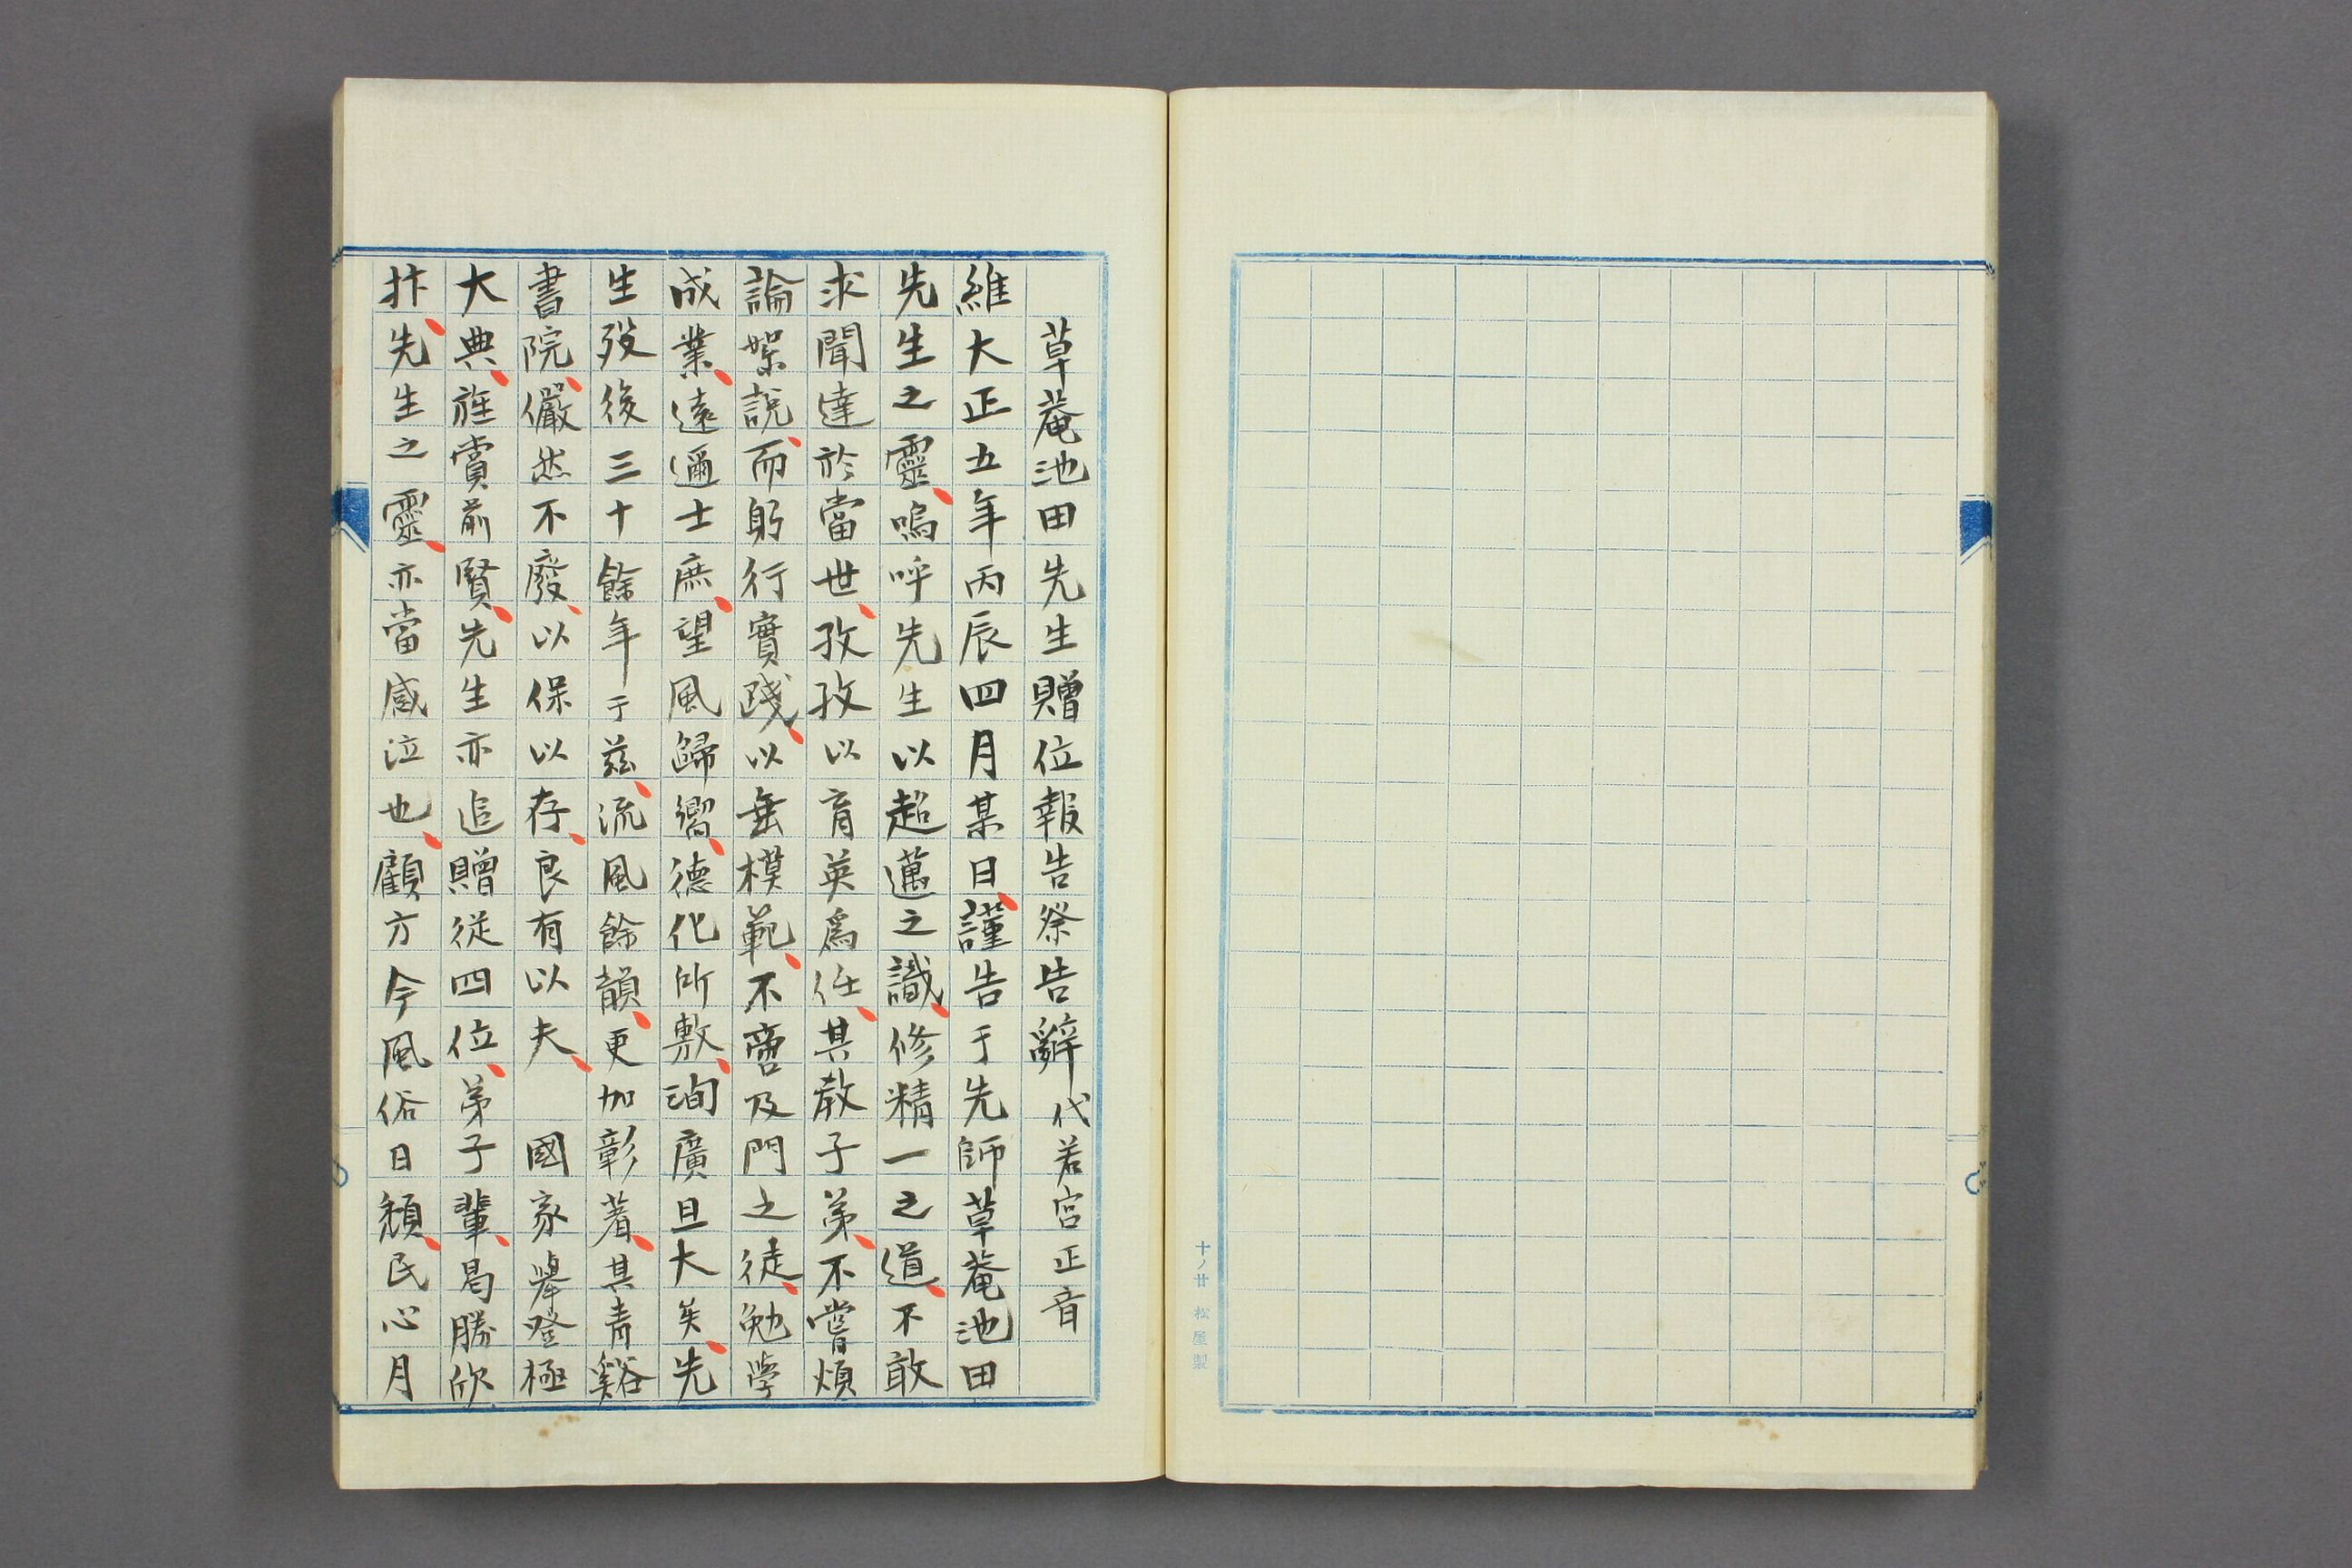 草菴池田先生贈位報告祭告辭 代若宮正音
維大正五年丙辰四月某日、謹告于先師草菴池田
先生之靈、嗚呼先生以超邁之識、修精一之道、不敢
求聞達於當世、孜孜以育英爲任、其教子弟、不嘗煩
論絮說、而躬行實踐、以垂模範、不啻及門之徒、勉學
成業、遠邇士庶、望風歸嚮、德化所敷、洵廣且大矣、先
生歿後三十餘年于茲、流風餘韻、更加彰著、其青谿
書院、儼然不廢、以保以存、良有以夫、 國家擧登極
大典、旌賞前賢、先生亦追贈從四位、弟子輩、曷勝欣
抃、先生之靈、亦當感泣也、顧方今風俗日頹、民心月
十ノ廿 松屋製